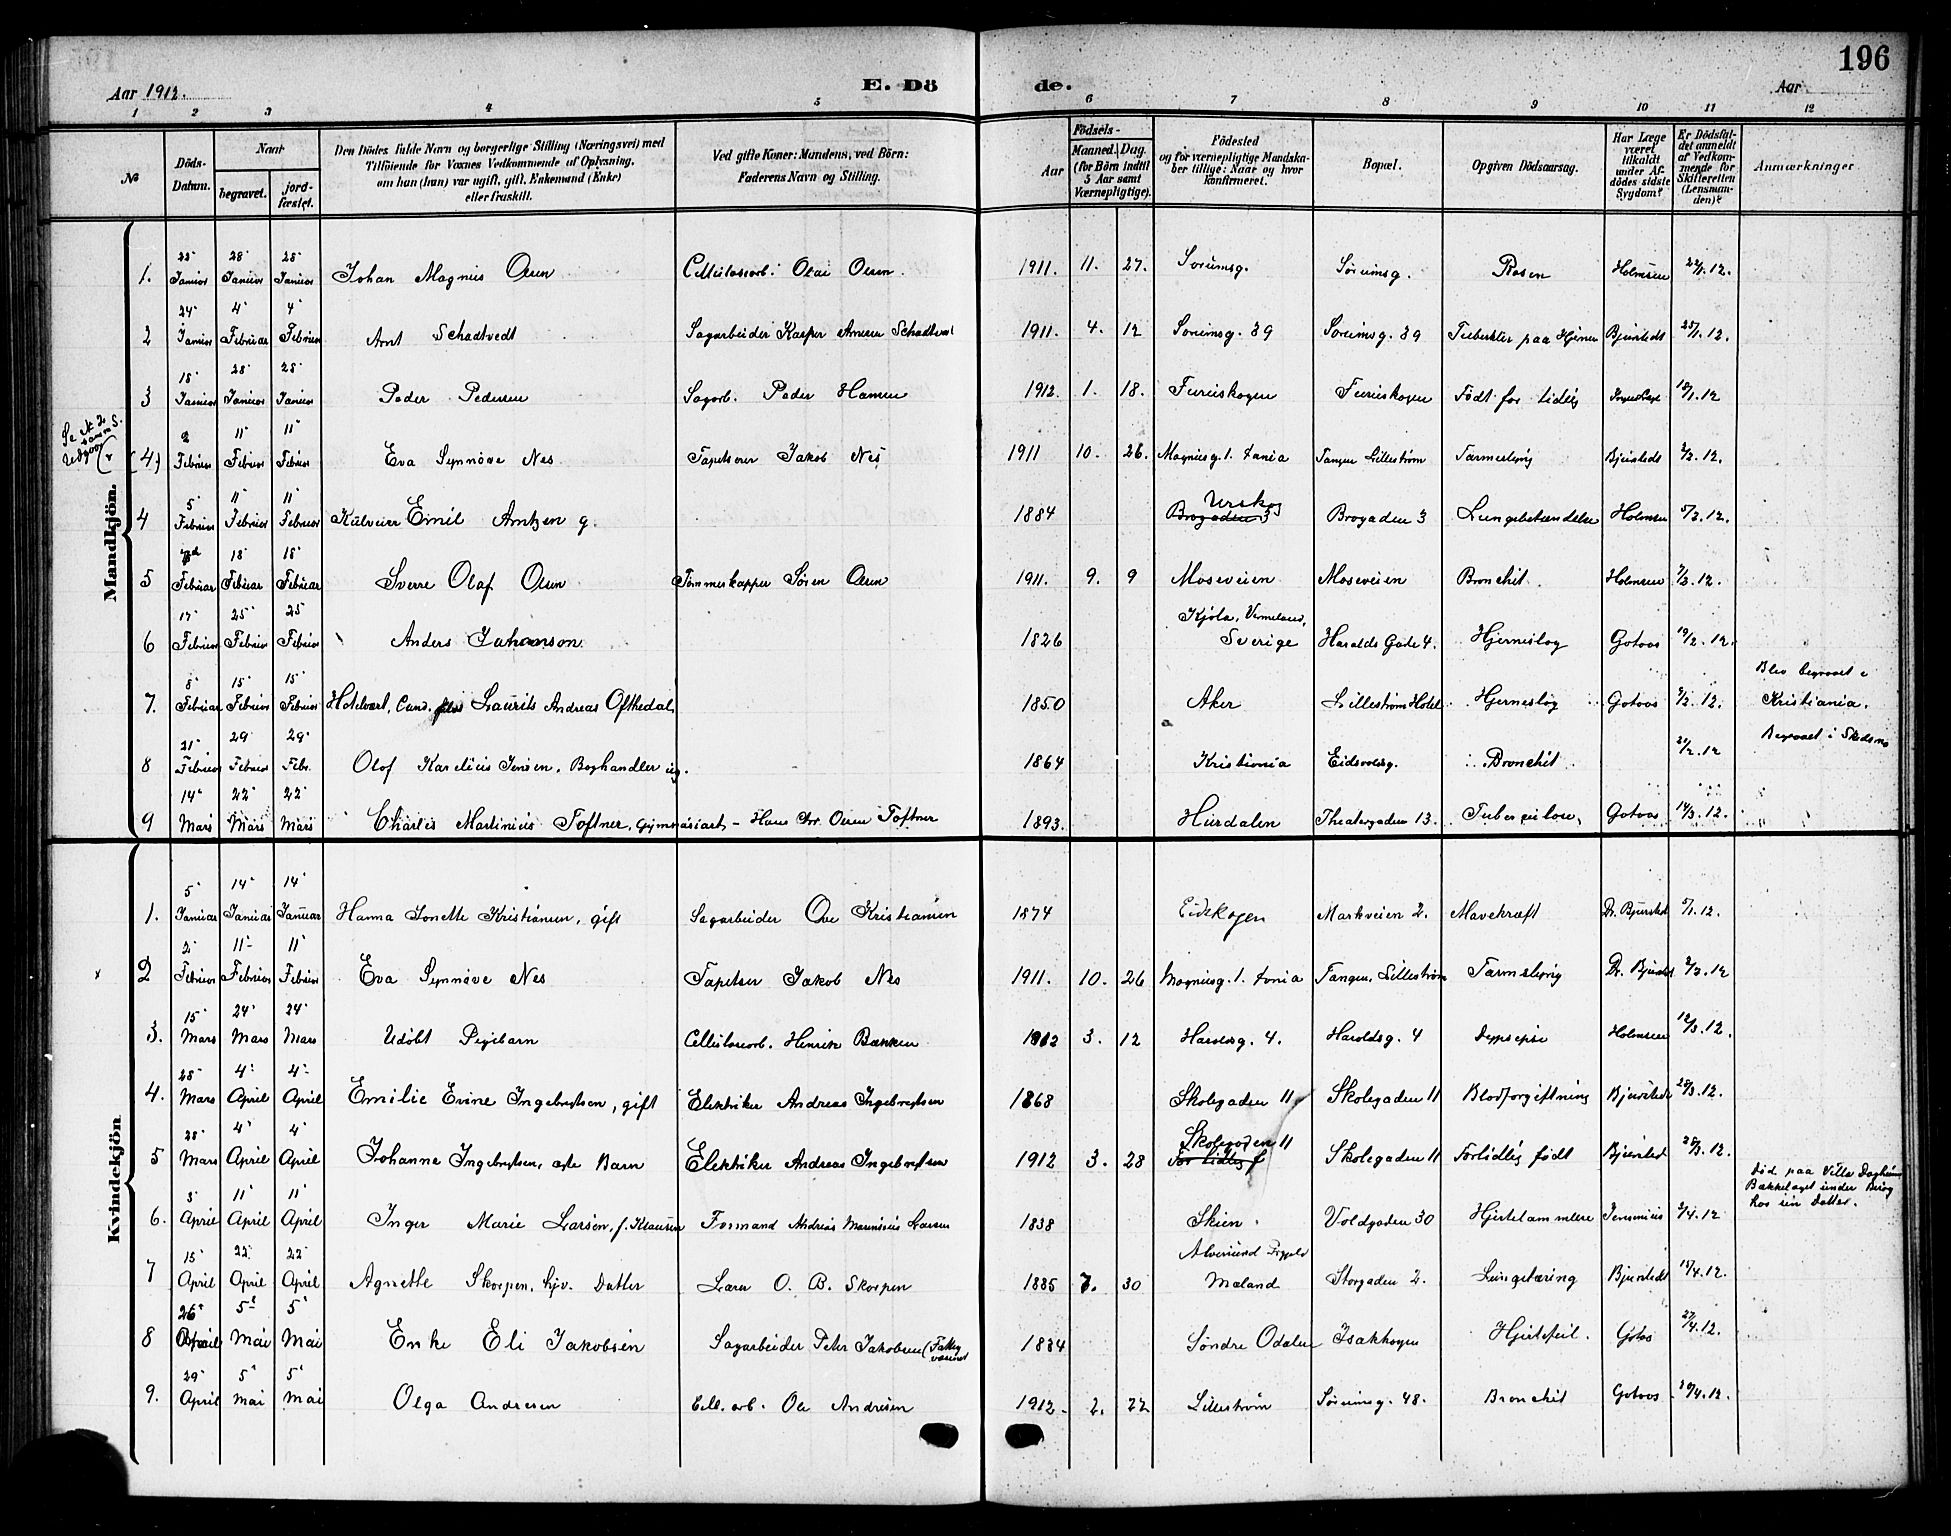 196
Aar 1912. E. Dö de. Aar
1 2 3 4 5 6 7 8 9 10 11 12
№
Döds-Datum.
Naar
begravet. jord-fæstet.
Den Dödes fulde Navn og borgerlige Stilling (Næringsvei) med
Tilföiende for Voxnes Vedkommende af Oplysning,
om han (hun) var ugift, gift, Enkemand (Enke)
eller fraskilt.
Ved gifte Koner: Mandens, ved Börn:
Faderens Navn og Stilling.
Födsels-
Aar Maaned. Dag.
(for Börn indtil
5 Aar samt
Værnepligtige).
Födested
og for værnepligtige Mandska-
ber tillige: Naar og hvor
konfirmeret.
Bopæl.
Opgiven Dödsaarsag.
Har Læge
været
tilkaldt
under Af-
dödes sidste
Sygdom?
Er Dödsfal-
det anmeldt
af Vedkom-
mende for
Skifteretten
(Lensman-
den)?
Anmærkninger
Mandkjön.
1. 22' Januar 28' Januar 28' Januar Johan Magnus Olsen Cellulosearb. Olai Olsen 1911. 11. 27. Sørumsg. Sørumsg. Rosen Holmsen 22/1.12.
2 24' Januar 4' Februar 4' Februar Arnt Schadtvedt Sagarbeider Kasper Amesen Schadtvedt 1911. 4. 12 Sørumsg. 39 Sørumsg. 39 Tuberkler paa Hjernen Bjurstedt 25/1.12.
3 18' Januar 28' Januar 28' Januar Peder Pedersen Sagarb. Peder Hansen 1912. 1. 18. Furuskogen Furuskogen Født for tidlig 18/1.12
Se № 2 samme S. Udgaar
(4) 2 Februar 11' Februar 11' Februar Eva Synnøve Nes Tapetserer Jakob Nes 1911 10. 26. Magnusg. 1. Tangen Lillestrøm Tarmslyng Bjurstedt 2/2.12.
4 5' Februar 11' Februar 11' Februar Emil Arntzen g. 1884 Brogaden 3 Urskog Brogaden 3 Lungebetændelse Holmsen 5/2.12.
5 Februar 18' Februar 18' Februar Sverre Olaf Olsen Tømmerkapper Søren Olsen 1911. 9. 9 Moseveien Moseveien Bronchit Holmsen 7/2.12.
6 17' Februar 25' Februar 25' Februar Anders Johanson 1826 Kjøla, Vermeland, Sverige Haralds Gade 4. Hjerneslag Gotaas 19/2.12.
7. 8' Februar 15' Februar 15' Februar Hotelvært, Cand. Laurits Andreas Ofthedal 1850 Aker Lillestrøm Hotel Hjerneslag Gotaas 9/2.12. Blev begravet i Kristiania.
8 21' Februar 29' Februar 29' Febr. Olaf Karelius Jensen, Boghandler ug. 1864 Kristiania Eidsvoldsg. Bronchit 21/2.12 Begravet i Skedsmo
9 14' Mars 22' Mars 22' Mars Charles Martinius Toftner, Gymnasiast - Hans Chr. Olsen Toftner 1893. Hurdalen Theatergaden 13. Tuberculose, Gotaas 14/3.12.
Kvindekjön
1. 5' Januar 14' Januar 14' Januar Hanna Jonette Kristiansen, gift Sagarbeider Ove Kristiansen 1874 Eidskogen Markveien 2. Mavekræft Dr. Bjurstedt 5/1.12.
2 2' Februar 11' Februar 11' Februar Eva Synnøve Nes Tapetserer Jakob Nes 1911. 10. 26 Magnusg. 1. Tangen, Lillestrøm Tarmslyng Dr. Bjurstedt 2/2.12
3. 15' Mars 24' Mars 24' Mars Udøbt Pigebarn Cellulosearb. Henrik Bakken 1912 3. 12 Haraldsg. 4. Haraldsg. 4 Holmsen 12/3.12.
4. 28' Mars 4' April 4' April Emilie Evine Ingebretsen, gift Elektriker Andreas Ingebretsen 1868 Skolegaden 11 Skolegaden 11 Blodforgiftning Bjurstedt 28/3.12.
5 28' Mars 4' April 4' April Johanne Ingebretsen, ægte Barn Elektriker Andreas Ingebretsen 1912 3. 28 Skolegaden 11 For tidlig f Skolegaden 11 Fortidlig født Bjurstedt 28/3.12.
6. 3' April 11' April 11' April Inger Marie Larsen, f. Klausen Formand Andreas Marinius Larsen 1838 Skien Voldgaden 30 Hjertelammelse Jensenius 3/4.12 Død paa Villa Dagheim Bækkelaget under Besøg hos sin Datter.
7 15' April 22' April 22' April Agnethe Skorpen, hjv. Datter Lærer O. B. Skorpen 1885 7. 30 Alversund Mæland Storgaden 2. Lungetæring Bjurstedt 15/4.12.
8 26' April 5' Mai 5' Mai Enke Eli Jakobsen Sagarbeider Peter Jakobsen (Fattigvæsenet 1834 Søndre Odalen Isakhagen Hjertefeil. Gotaas 27/4.12.
9. 29' April 5' Mai 5' Mai Olga Andresen Cell. arb. Ole Andresen 1912. 2. 22 Lillestrøm Sørumsg. 48. Bronchit Gotaas 29/4.12.